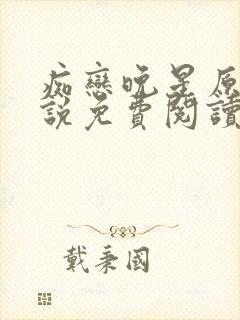 痴戀晚星原
說免費閱讀
戴秉國